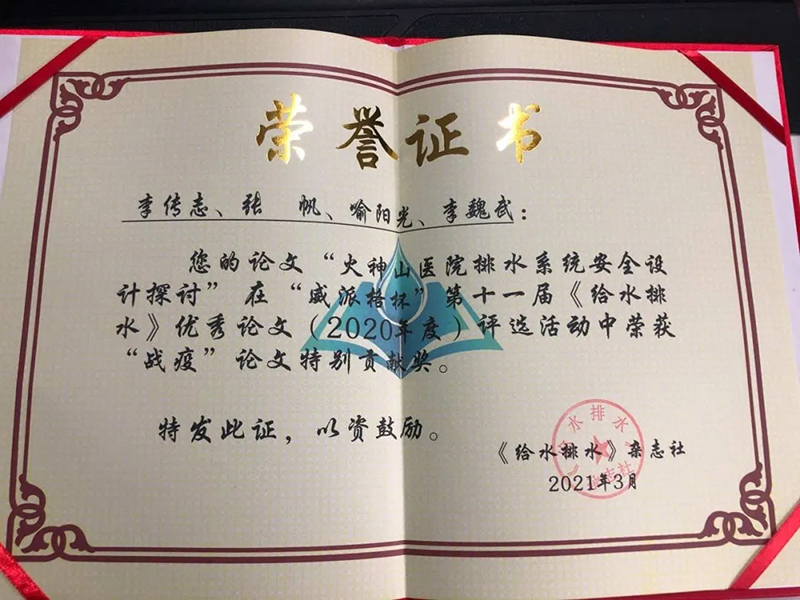 荣誉证书
李传志、张 帆、喻阳光、李魏武：
您的论文“火神山医院排水系统安全设
计探讨”在“威派格杯”第十一届《给水排
水》优秀论文（2020年度）评选活动中荣获
“战疫”论文特别贡献奖。
特发此证，以资鼓励。
《给水排水》杂志社
2021年3月